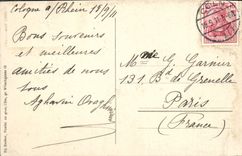 Cologne a/Rhein 18/5/11
Bons souvenirs
et meilleures
amitiés de nous
tous
Mr G. Garnier
131, Bd de Grenelle
Paris
(France)